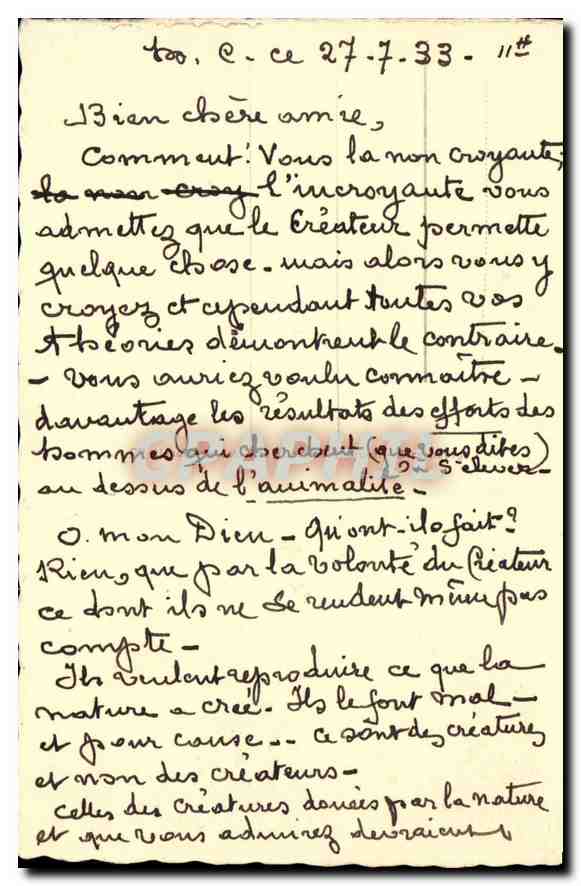 C. ce 27-7-33- 11#
Bien chère amie,
Comment! Vous la non croyante,
la non croy l'incroyante vous
admettez que le Créateur permette
quelque chose - mais alors vous y
croyez et cependant toutes vos
théories démontrent le contraire -
- Vous auriez voulu connaître -
davantage les résultats des efforts des
hommes qui cherchent (que vous dites)
à s'élever -
au dessus de l'animalité -
O. mon Dieu - Qu'ont-ils fait?
Rien, que par la volonté du Créateur
ce dont ils ne se rendent même pas
compte -
Ils veulent reproduire ce que la
nature a créé - Ils le font mal -
et pour cause -- ce sont des créatures
et non des créateurs -
Celles des créatures douées par la nature
et que vous admirez devraient